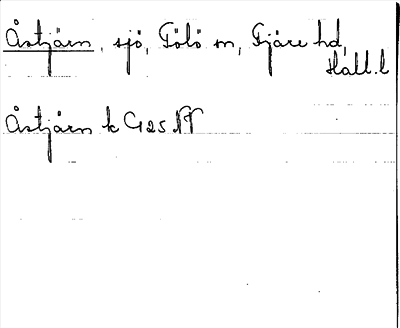 Åstjärn, sjö, Tölö sn, Fjäre hd,
Hall. l
Åstjärn k G 25 NV